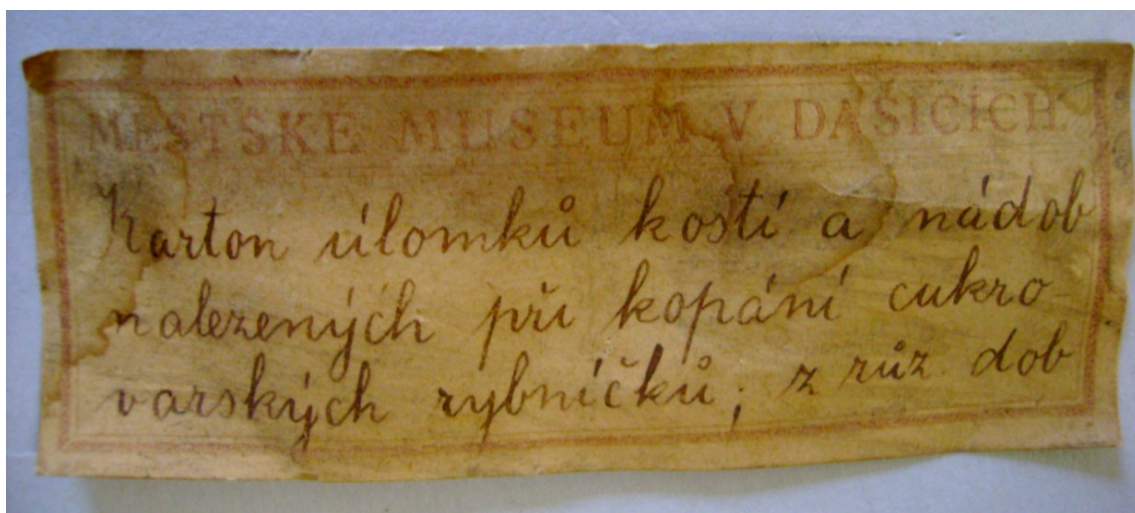 MĚSTSKÉ MUSEUM V DAŠICÍCH.
Karton úlomků kostí a nádob
nalezených při kopání cukro
varských rybníčků; z růz. dob